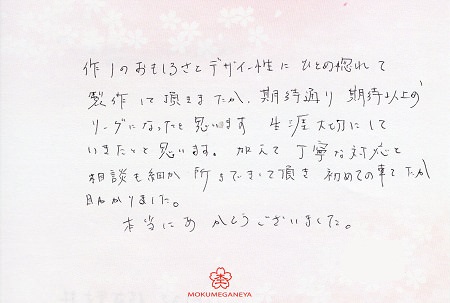 作りのおもしろさとデザイン性にひとめ惚れて
製作して頂きましたが、期待通り 期待以上の
リングになったと思います 生涯大切にして
いきたいと思います。加えて丁寧な対応と
相談も細か 所までして頂き 初めての事でしたが
助かりました。
本当にありがとうございました。
MOKUMEGANEYA